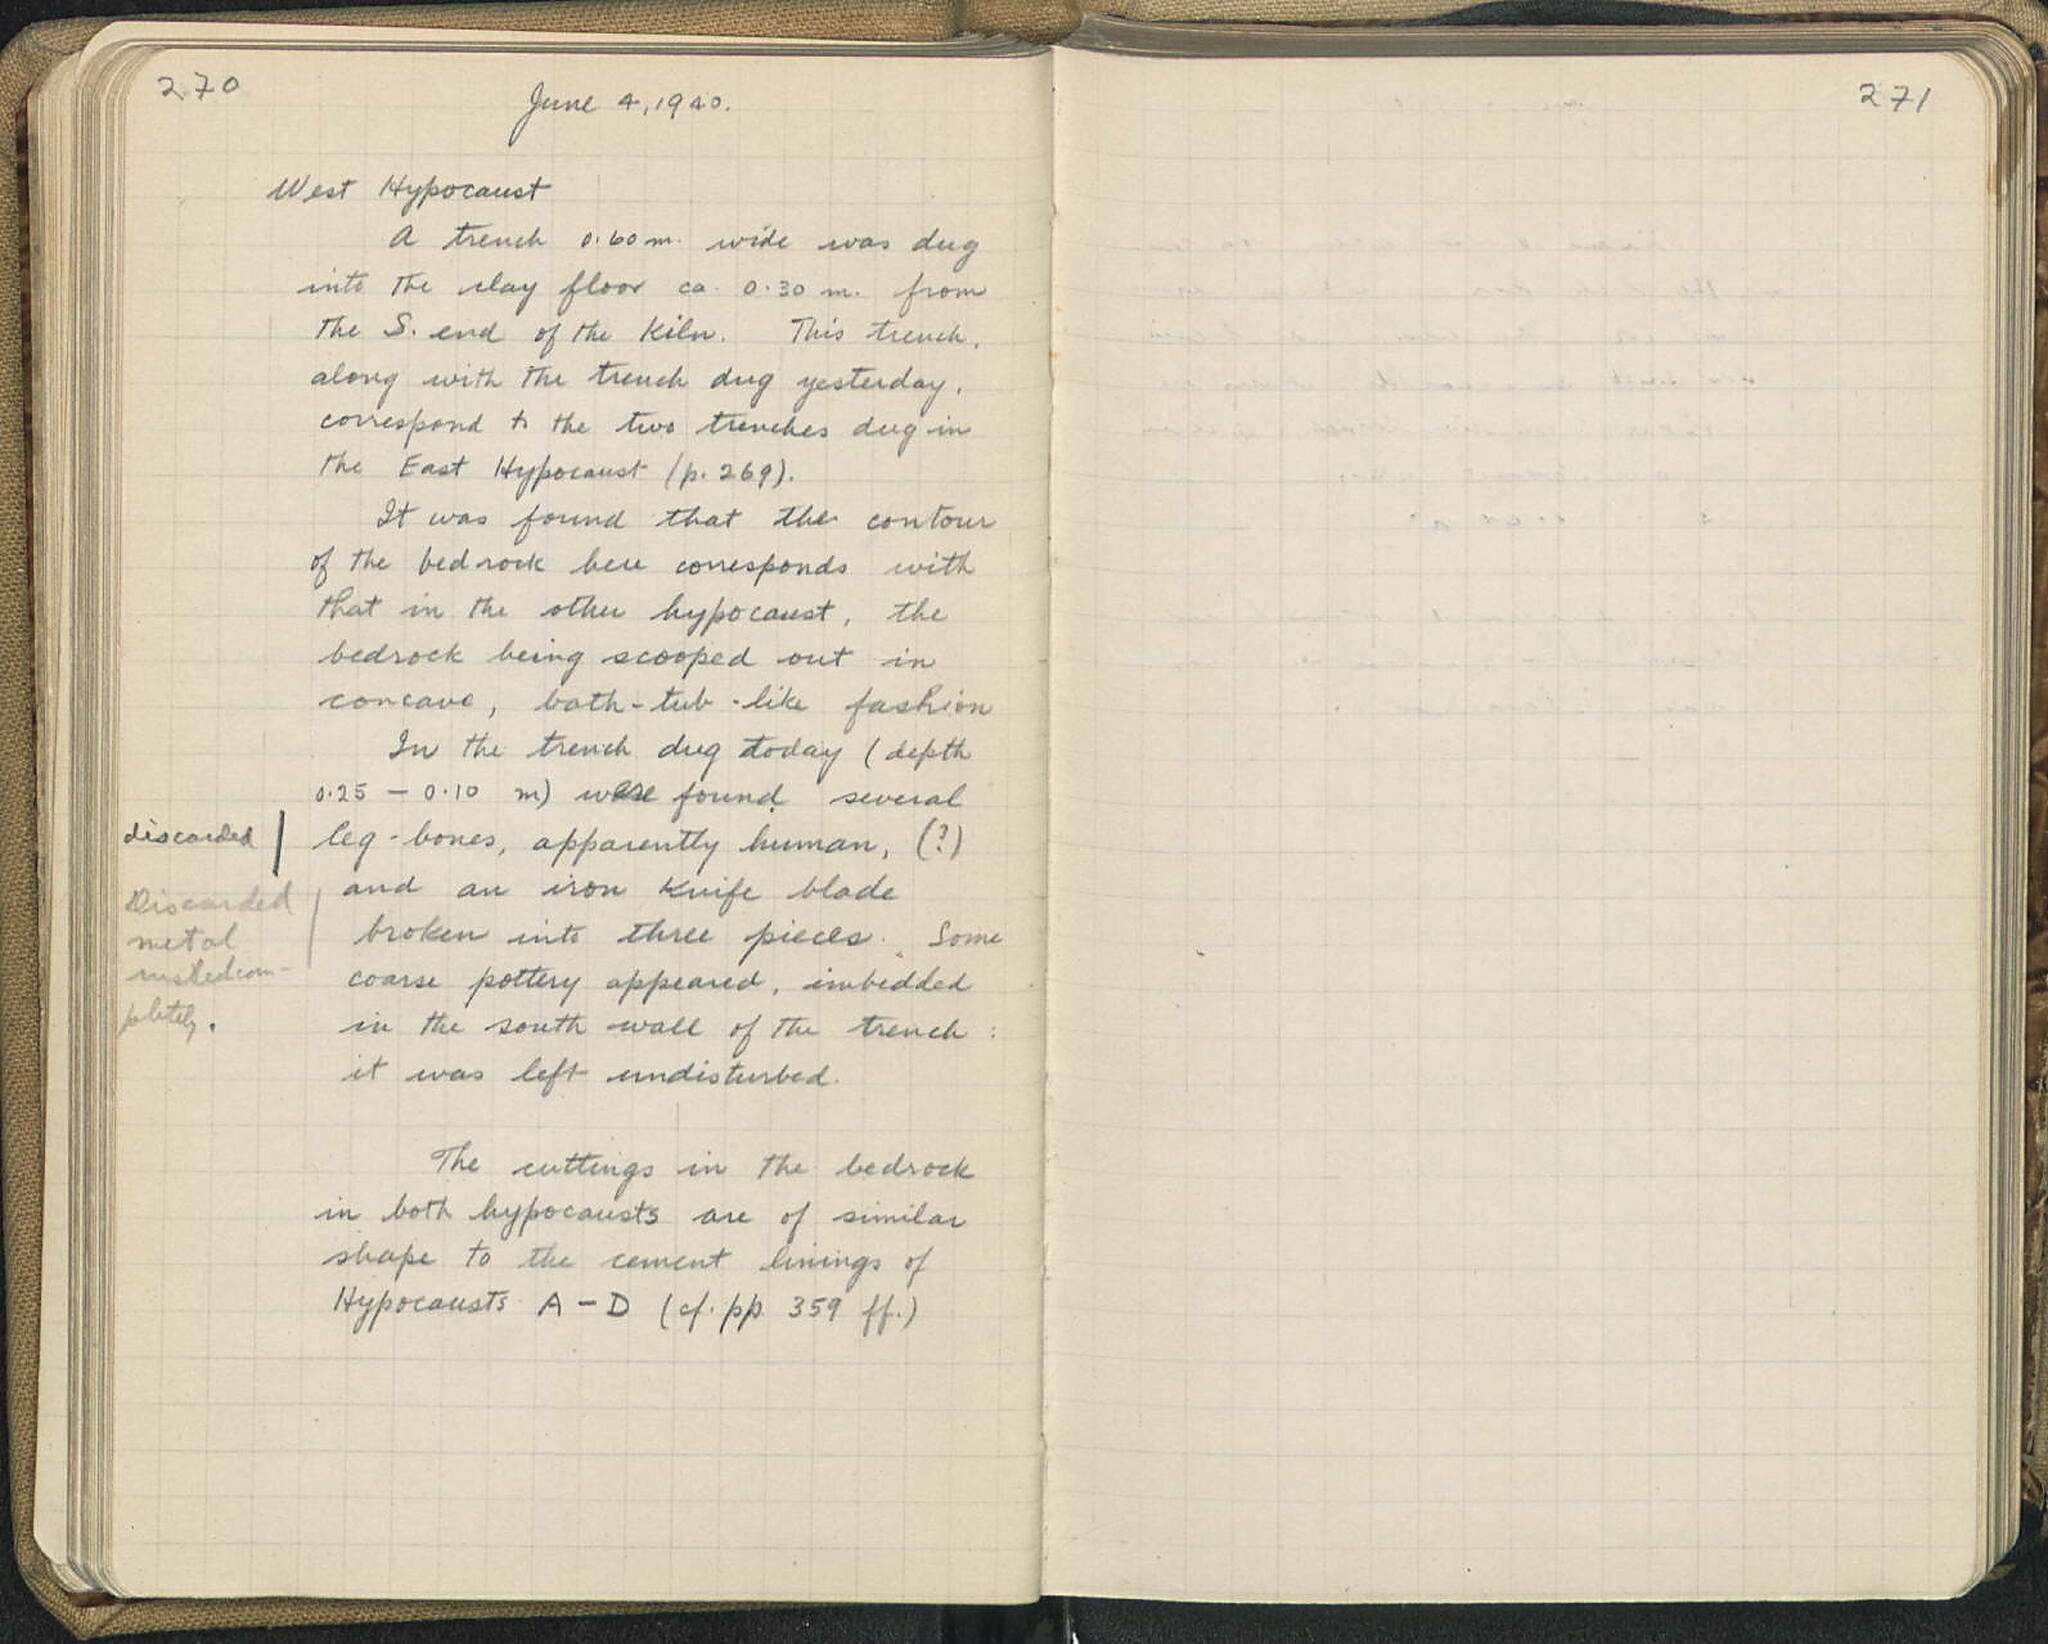 270
June 4, 1940.
West Hypocaust
A trench 0.60 m. wide was dug
into the clay floor ca. 0.30 m. from
the S. end of the Kiln. This trench,
along with the trench dug yesterday,
correspond to the two trenches dug in
the East Hypocaust (p. 269).
It was found that the contour
of the bedrock here corresponds with
that in the other hypocaust, the
bedrock being scooped out in
concave, bath-tub-like fashion
In the trench dug today (depth
0.25 – 0.10 m) were found several
discarded | leg-bones, apparently human, (?)
and an iron knife blade
broken into three pieces. Some
coarse pottery appeared, imbedded
in the south wall of the trench :
it was left undisturbed.
Discarded
metal
rusted com-
pletely.
The cuttings in the bedrock
in both hypocausts are of similar
shape to the cement linings of
Hypocausts A – D (cf. pp. 359 ff.)
271